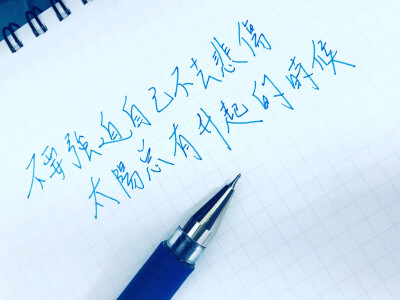 不要強迫自己不去悲傷
太陽总有升起的時候